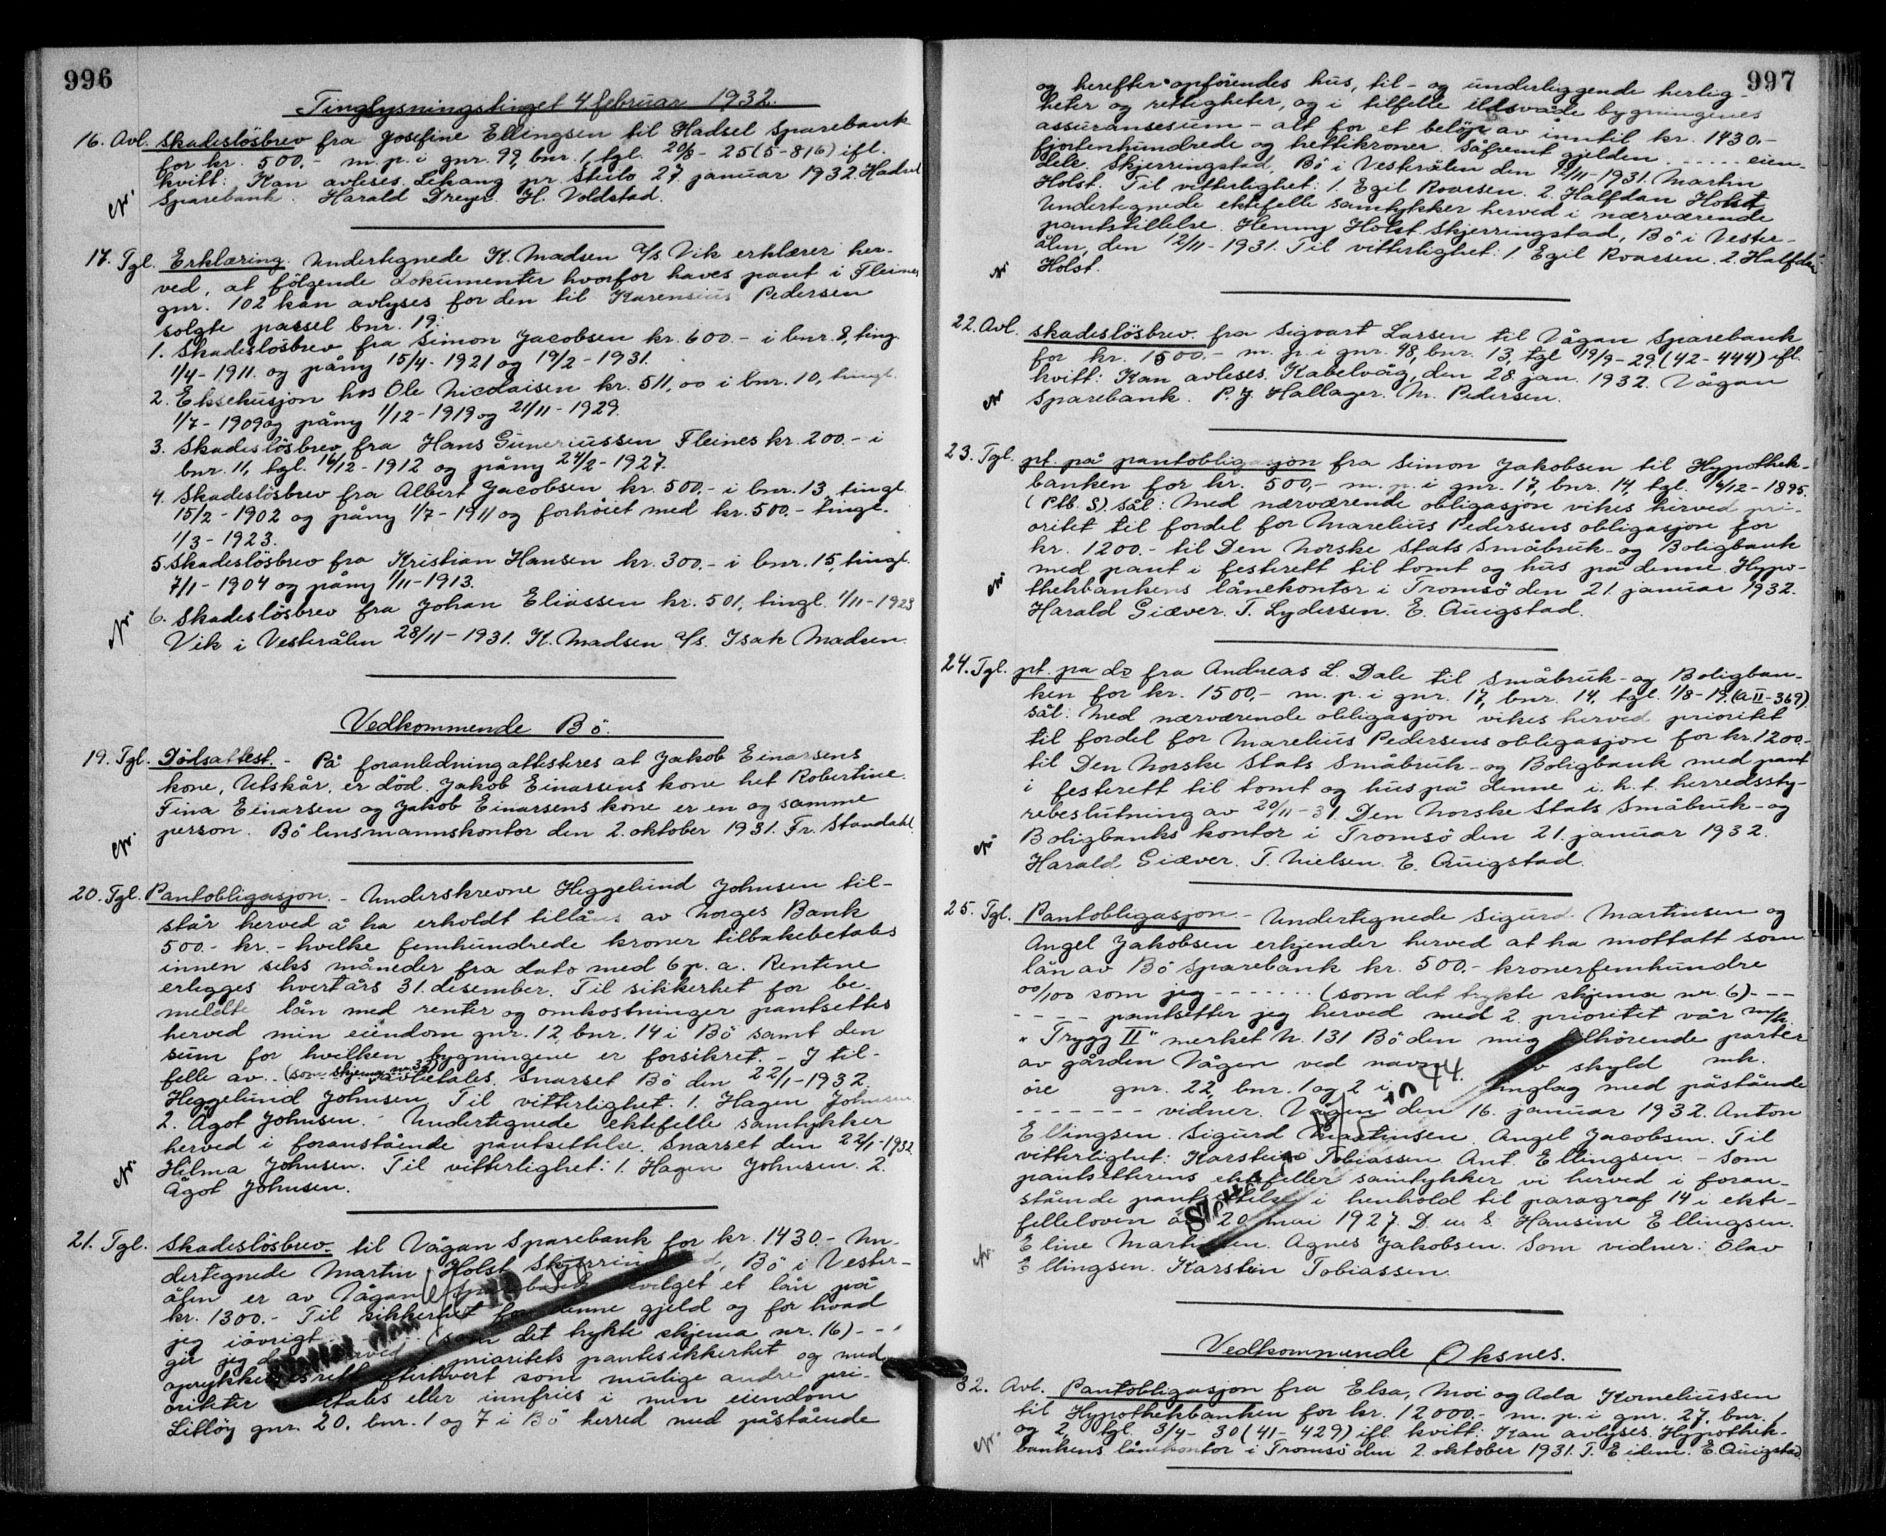 996
Tinglysningstinget 4 februar 1932.
16. Avl. Skadeslösbrev fra Josefine Ellingsen til Hadsel Sparebank
for kr. 500,- m. p. i gnr. 99, bnr. 1, tgl. 20/8 - 25 (5-816) ifl.
kvitt: Kan avleses. Lekang pr. Steilo 27 januar 1932. Hadsel
Sparebank. Harald Dreyer. H. Voldstad.
17. Tgl. Erklæring. Undertegnede K. Madsen A/S Vik erklærer her-
ved, at følgende dokumenter hvorfor haves pant i Fleines
gnr. 102 kan avlyses for den til Karensius Pedersen
solgte parsel bnr. 19:
1. Skadeslösbrev fra Simon Jacobsen kr. 600.- i bnr. 8, ting
1/4-1911. og påny 15/4-1921 og 19/2-1931.
2. Eksekusjon hos Ole Nicolaisen kr. 511,00 i bnr. 10, tingl.
1/7-1909 og påny 1/12-1919 og 21/11-1929.
3. Skadeslösbrev fra Hans Guneriussen Fleines kr. 200.- i
bnr. 11, tgl. 16/12-1912 og påny 24/2-1927.
4. Skadeslösbrev fra Albert Jacobsen kr. 500,- i bnr. 13, tingl.
15/2-1902 og påny 1/7-1911 og forhöiet med kr. 500.- tingl.
1/3-1923.
5. Skadeslösbrev fra Kristian Hansen kr. 300.- i bnr. 15, tingl.
7/1-1904 og påny 1/11-1913.
6. Skadeslösbrev fra Johan Eliassen kr. 501, tingl. 1/11-1923
Vik i Vesterålen 28/11-1931. K. Madsen A/S. Isak Madsen.
Vedkommende Bö.
19. Tgl. Dödsattest. - På foranledning attesteres at Jakob Einarsens
kone, Utskår, er död. Jakob Einarsens kone het Robertine.
Fina Einarsen og Jakob Einarsens kone er en og samme
person. Bö lensmannskontor den 2. oktober 1931. Fr. Standahl.
20. Tgl. Pantobligasjon. - Underskrevne Heggelund Johnsen til-
står herved å ha erholdt tillåns av Norges Bank
500.- kr. - hvilke femhundrede kroner tilbakebetales
innen seks måneder fra dato med 6 p. a. Rentene
erlegges hvert års 31. desember. Til sikkerhet for be-
meldte lån med renter og omkostninger pantsettes
herved min eiendom gnr. 12 bnr. 14 i Bö samt den
sum for hvilken bygningene er forsikret. - I til-
felle av .. (som skjema nr. 32) avbetales. Snarset Bö den 22/1-1932.
Heggelund Johnsen. Til vitterlighet. 1. Hagen Johnsen
2. Ågot Johnsen. - Undertegnede ektefelle samtykker
herved i foranstående pantsettelse. Snarset den 22/1-1932.
Hilma Johnsen. Til vitterlighet: 1. Hagen Johnsen. 2.
Ågot Johnsen.
21. Tgl. Skadeslösbrev. til Vågan Sparebank for kr. 1430.- Un-
dertegnede Martin Holst, Bö i Vester-
ålen er av Vågan Sparebank bevilget et lån på
kr. 1300.- Til sikkerhet for denne gjeld og for hvad
jeg iövrigt (som det trykte skjema nr. 16) - - ,
gir jeg prioritets pantesikkerhet og med
oprykkelsesrett efterhvert som mulige andre pri-
oriteter betales eller innfries i min eiendom
Litlöy gnr. 20, bnr. 1 og 7 i Bö herred med påstående
997
og herefter opförendes hus, til- og underliggende herlig-
heter og rettigheter, og i tilfelle ildsvåde bygningenes
assuransesum - alt for et belöp av inntil kr. 1430.-
fjortenhundrede og trettikroner. Såfremt gjelden ...... eien-
dele. Skjerringstad, Bö i Vesterålen den 12/11-1931. Martin
Holst. Til vitterlighet: 1. Egil Roarsen. 2. Halfdan Holst
Undertegnede ektefelle samtykker herved i nærværende
pantstillelse. Henny Holst. Skjerringstad, Bö i Vester-
ålen, den 12/11-1931. Til vitterlighet: 1. Egil Roarsen. 2. Halfdan
Holst.
22. Avl. Skadeslösbrev. fra Sigvart Larsen til Vågan Sparebank
for kr. 1500,- m. p. i gnr. 48, bnr. 13, tgl. 19/9-29 (42-444) ifl.
kvitt: Kan avleses. Kabelvåg, den 28 jan. 1932. Vågan
Sparebank. P. J. Hallager. M. Pedersen.
23. Tgl. pt. på pantobligasjon fra Simon Jakobsen til Hypothek-
banken for kr. 500,- m. p. i gnr. 17, bnr. 14, tgl. 14/12-1895.
(Ptb. S). sål: Med nærværende obligasjon vikes herved pri-
oritet til fordel for Marelius Pedersens obligasjon for
kr. 1200.- til Den Norske Stats Småbruk- og Boligbank
med pant i festerett til tomt og hus på denne. Hypo-
thekbankens lånekontor i Tromsö den 21. januar 1932.
Harald Giæver. T. Lydersen. E. Quigstad.
24. Tgl. pt. pa do fra Andreas L. Dale til Småbruk- og Boligban-
ken for kr. 1500,- m. p. i gnr. 17, bnr. 14, tgl. 1/8-19. (A II-369)
sål: Med nærværende obligasjon vikes herved prioritet
til fordel for Marelius Pedersens obligasjon for kr. 1200.-
til Den Norske Stats Småbruk- og Boligbank med pant
i festerett til tomt og hus på denne i. h. t. herredssty-
rebeslutning av 20/11-31. Den Norske Stats Småbruk- og
Boligbanks kontor i Tromsö den 21. januar 1932.
Harald Giæver. T. Nielsen. E. Quigstad.
25. Tgl. Pantobligasjon - Undertegnede Sigurd Martinsen og
Angel Jakobsen erkjender herved at ha mottatt som
lån av Bö Sparebank kr. 500.- kronerfemhundre
00/100 som jeg - - - - - - - (som det trykte skjema nr. 6) - - -
- - - - pantsetter jeg herved med 2. prioritet vår m/k.
"Trygg II" merket N. 131 Bö den mig tilhörende parter
av gården Vågen ved navn av skyld mk.
öre gnr. 22, bnr. 1 og 2 i tinglag med påstående
- - - - - - - vidner. Vågen den 16. januar 1932. Anton
Ellingsen. Sigurd Martinsen. Angel Jacobsen. Til
vitterlighet: Karstein Tobiassen. Ant. Ellingsen. - Som
pantsetterens ektefeller samtykker vi herved i foran-
stående pantsettelse i henhold til paragraf 14 i ekte-
felleloven av 20 mai 1927. D. u. S. Hansine Ellingsen.
Eline Martinsen. Agnes Jakobsen. Som vidner: Olav
Ellingsen. Karstein Tobiassen.
Vedkommende Öksnes.
32. Avl. Pantobligasjon fra Elsa, Moi og Ada Korneliussen
til Hypothekbanken for kr. 12000.- m. p. i gnr. 27, bnr. 1
og 2, tgl. 3/4-30 (41-429) ifl. kvitt: Kan avlyses. Hypothek-
bankens lånekontor i Tromsö den 2. oktober 1931. T. Eidem. E. Quigstad.